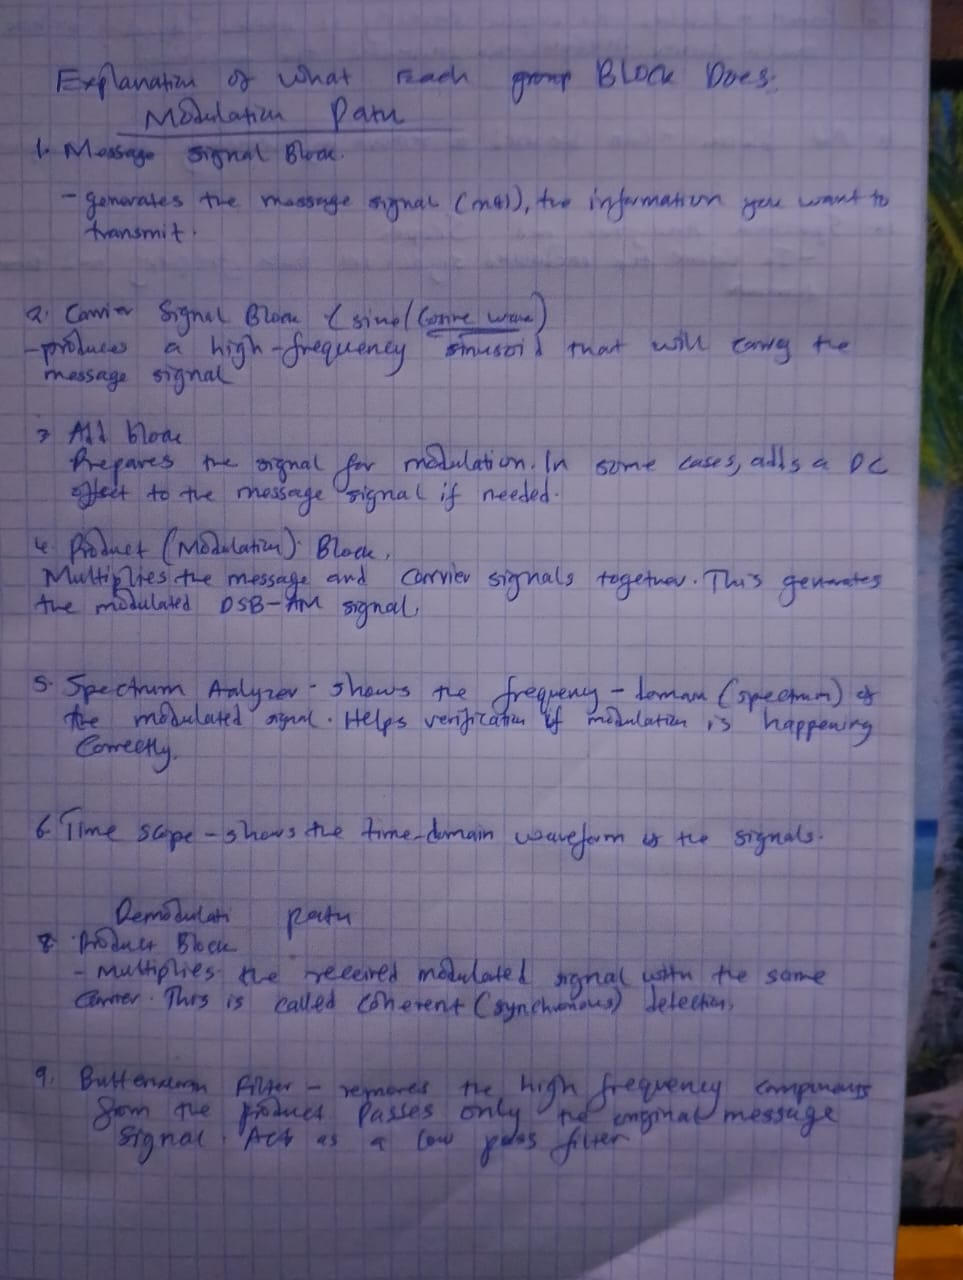 Explanation of what Each group Block Does.
Modulation Path
1. Message signal Block.
- generates the message signal (m(t)), the information you want to
transmit.
2. Carrier Signal Block (sine/Cosine wave)
- produces a high-frequency sinusoid that will carry the
message signal
3 Add block
Prepares the signal for modulation. In some cases, adds a DC
offset to the message signal if needed.
4. Product (Modulation) Block.
Multiplies the message and carrier signals together. This generates
the modulated DSB-AM signal.
5. Spectrum Analyzer - shows the frequency - domain (spectrum) of
the modulated signal. Helps verification if modulation is happening
Correctly.
6. Time scope - shows the time-domain waveform of the signals.
Demodulati path
8 Product Block
- Multiplies the received modulated signal with the same
Carrier. This is called Coherent (synchronous) detection.
9. Butterworth Filter - removes the high frequency components
from the product Passes only the original message
signal. Acts as a low pass filter